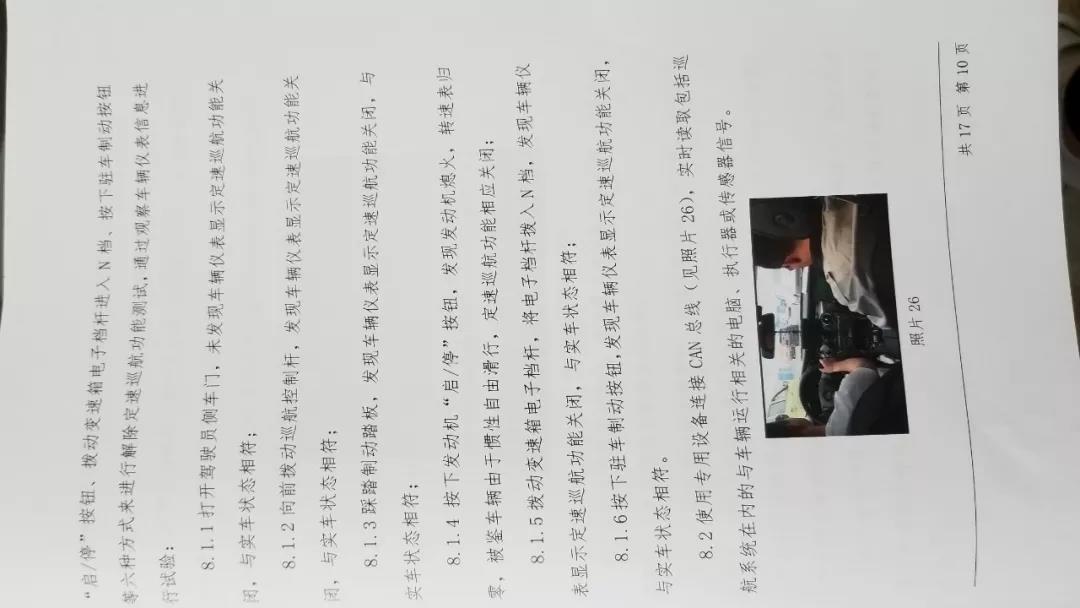 “启/停”按钮、拨动变速箱电子档杆进入 N 档、按下驻车制动按钮
等六种方式来进行解除定速巡航功能测试，通过观察车辆仪表信息进
行试验：
8.1.1 打开驾驶员侧车门，未发现车辆仪表显示定速巡航功能关
闭，与实车状态相符；
8.1.2 向前拨动巡航控制杆，发现车辆仪表显示定速巡航功能关
闭，与实车状态相符；
8.1.3 踩踏制动踏板，发现车辆仪表显示定速巡航功能关闭，与
实车状态相符；
8.1.4 按下发动机“启/停”按钮，发现发动机熄火，转速表归
零，被鉴车辆由于惯性自由滑行，定速巡航功能相应关闭；
8.1.5 拨动变速箱电子档杆，将电子档杆拨入 N 档，发现车辆仪
表显示定速巡航功能关闭，与实车状态相符；
8.1.6 按下驻车制动按钮，发现车辆仪表显示定速巡航功能关闭，
与实车状态相符。
8.2 使用专用设备连接 CAN 总线（见照片 26），实时读取包括巡
航系统在内的与车辆运行相关的电脑、执行器或传感器信号。
照片 26
共 17 页 第 10 页